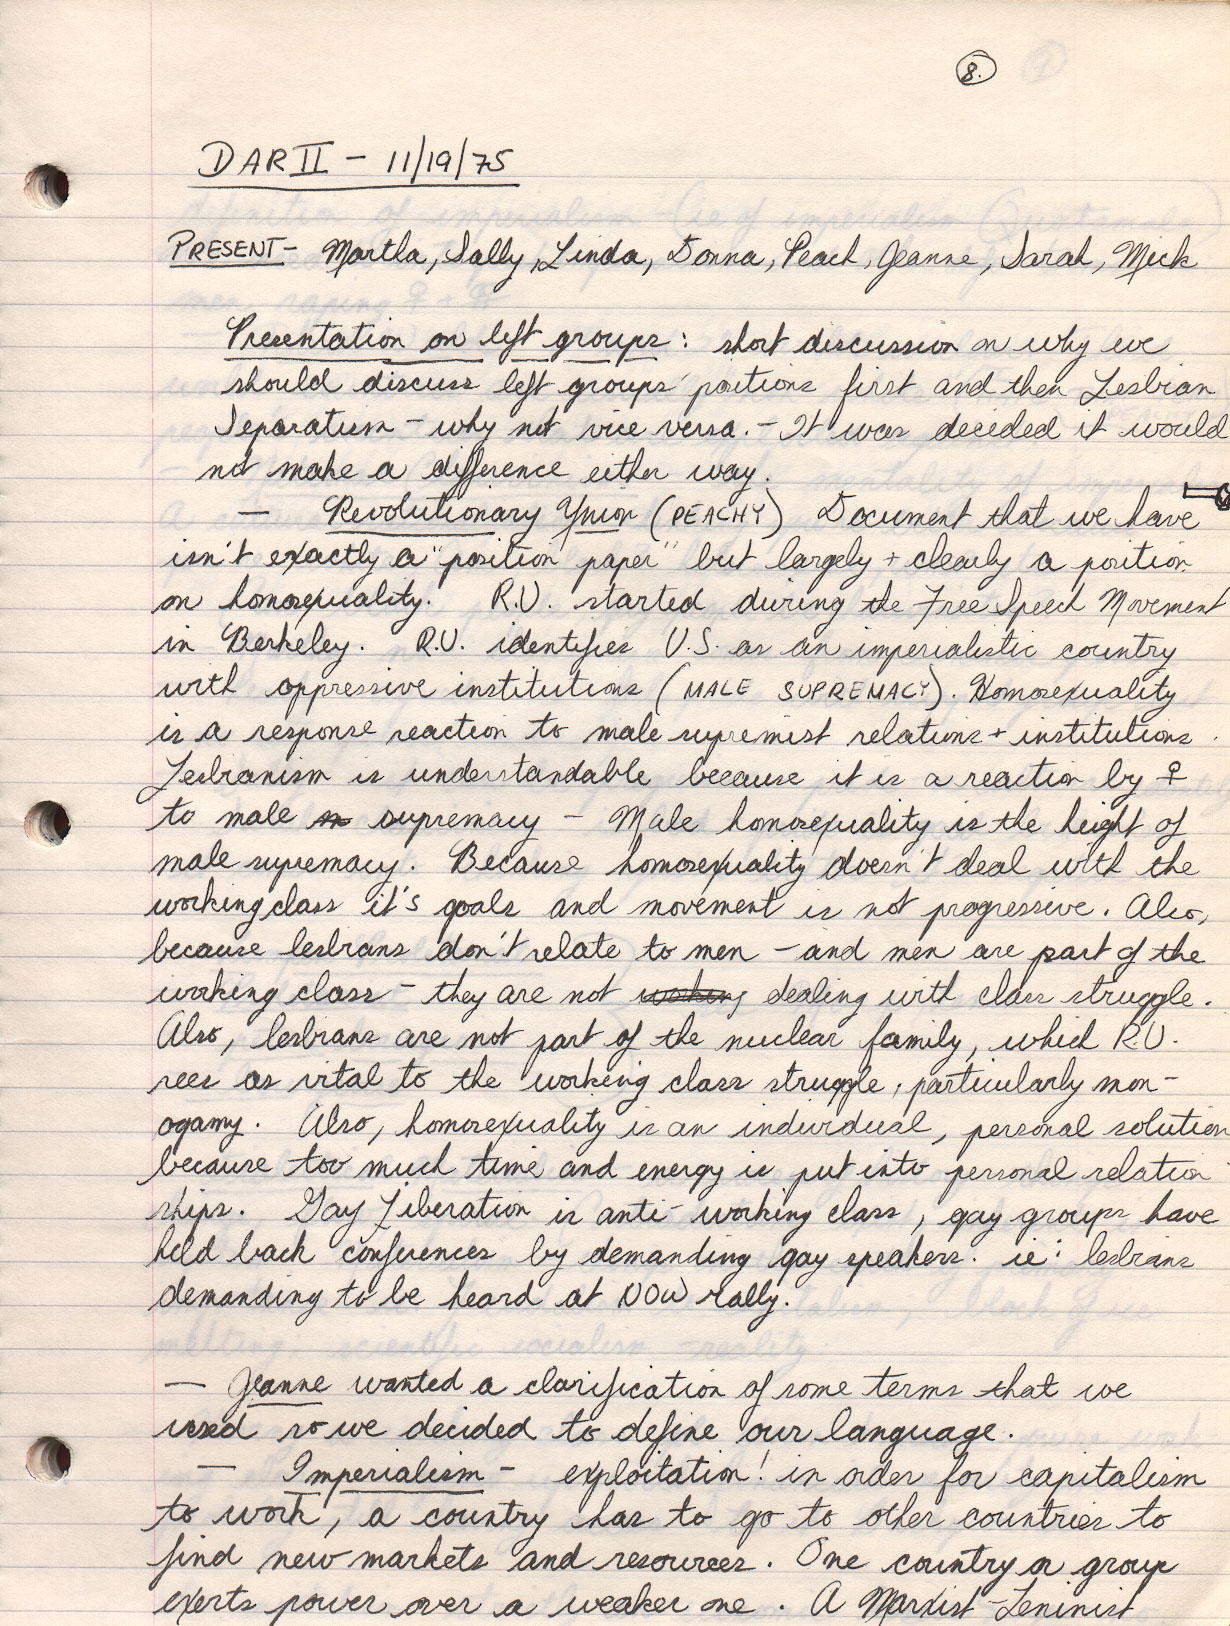 8.
DAR II - 11/19/75
PRESENT- Martha, Sally, Linda, Donna, Peach, Jeanne, Sarah, Mick
Presentation on left groups: short discussion on why we
should discuss left groups' positions first and then Lesbian
Separatism - why not vice versa. - It was decided it would
not make a difference either way.
- Revolutionary Union (PEACHY) Document that we have
isn't exactly a "position paper" but largely + clearly a position
on homosexuality. R.U. started during the Free Speech Movement
in Berkeley. R.U. identifies U.S. as an imperialistic country
with oppressive institutions (MALE SUPREMACY). Homosexuality
is a response reaction to male supremist relations + institutions.
Lesbianism is understandable because it is a reaction by ♀
to male supremacy - Male homosexuality is the height of
male supremacy. Because homosexuality doesn't deal with the
working class it's goals and movement is not progressive. Also,
because lesbians don't relate to men - and men are part of the
working class - they are not working dealing with class struggle.
Also, lesbians are not part of the nuclear family, which R.U.
sees as vital to the working class struggle, particularly mon-
ogamy. Also, homosexuality is an individual, personal solution
because too much time and energy is put into personal relation
ships. Gay Liberation is anti-working class, gay groups have
held back conferences by demanding gay speakers. ie: lesbians
demanding to be heard at NOW rally.
- Jeanne wanted a clarification of some terms that we
used so we decided to define our language.
- Imperialism - exploitation! in order for capitalism
to work, a country has to go to other countries to
find new markets and resources. One country or group
exerts power over a weaker one. A Marxist-Leninist